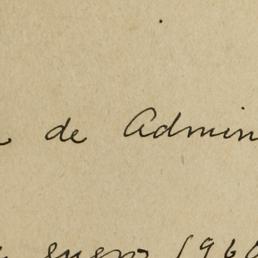 de Admin
enero 1960